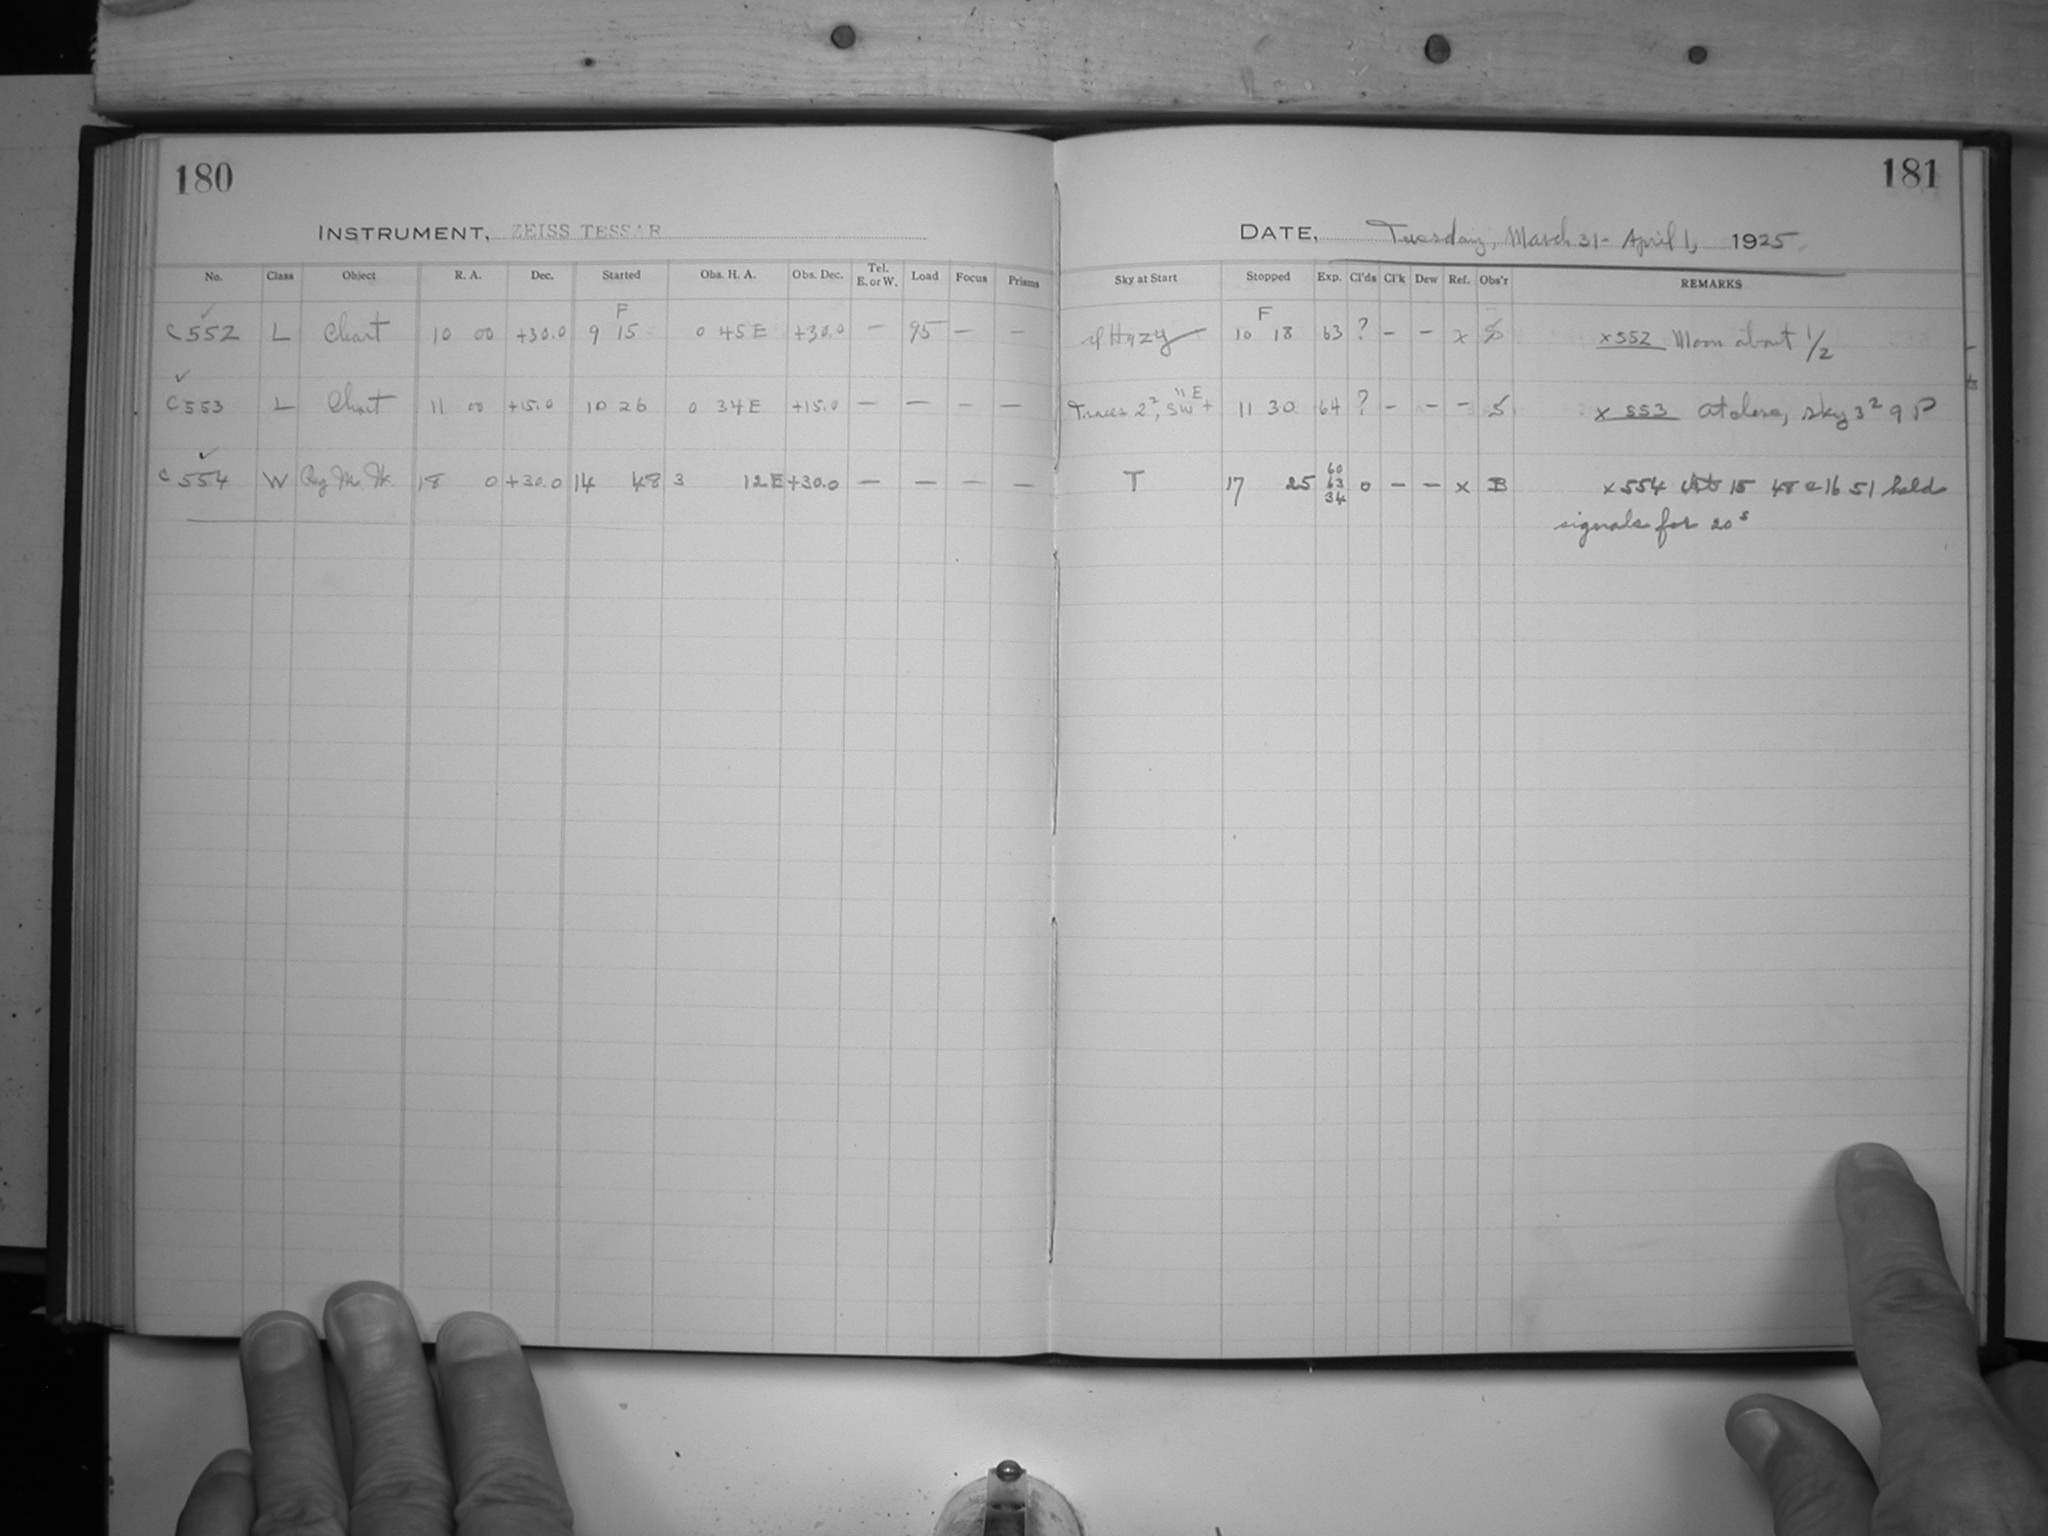 180
181
INSTRUMENT, ZEISS TESSAR
DATE, Tuesday, March 31 - April 1, 1925.
No. Class Object R. A. Dec. Started Obs. H. A. Obs. Dec. Tel. E. or W. Load Focus Prisms Sky at Start Stopped Exp. Cl'ds Cl'k Dew Ref. Obs'r REMARKS
F F
C 552 L Chart 10 00 +30.0 9 15 0 45 E +30.0 — 95 — — Hazy 10 18 63 ? — — x S x 552 Moon about 1/2
C 553 L Chart 11 00 +15.0 10 26 0 34 E +15.0 — — — — Traces 2², SW + "E 11 30 64 ? — — — S x 553 At close, sky 3² 9 P
C 554 W Reg M. 18 0 +30.0 14 48 3 12 E +30.0 — — — — T 17 25 60 63 34 0 — — x B x 554 At 15 48 & 16 51 held
signals for 20ˢ